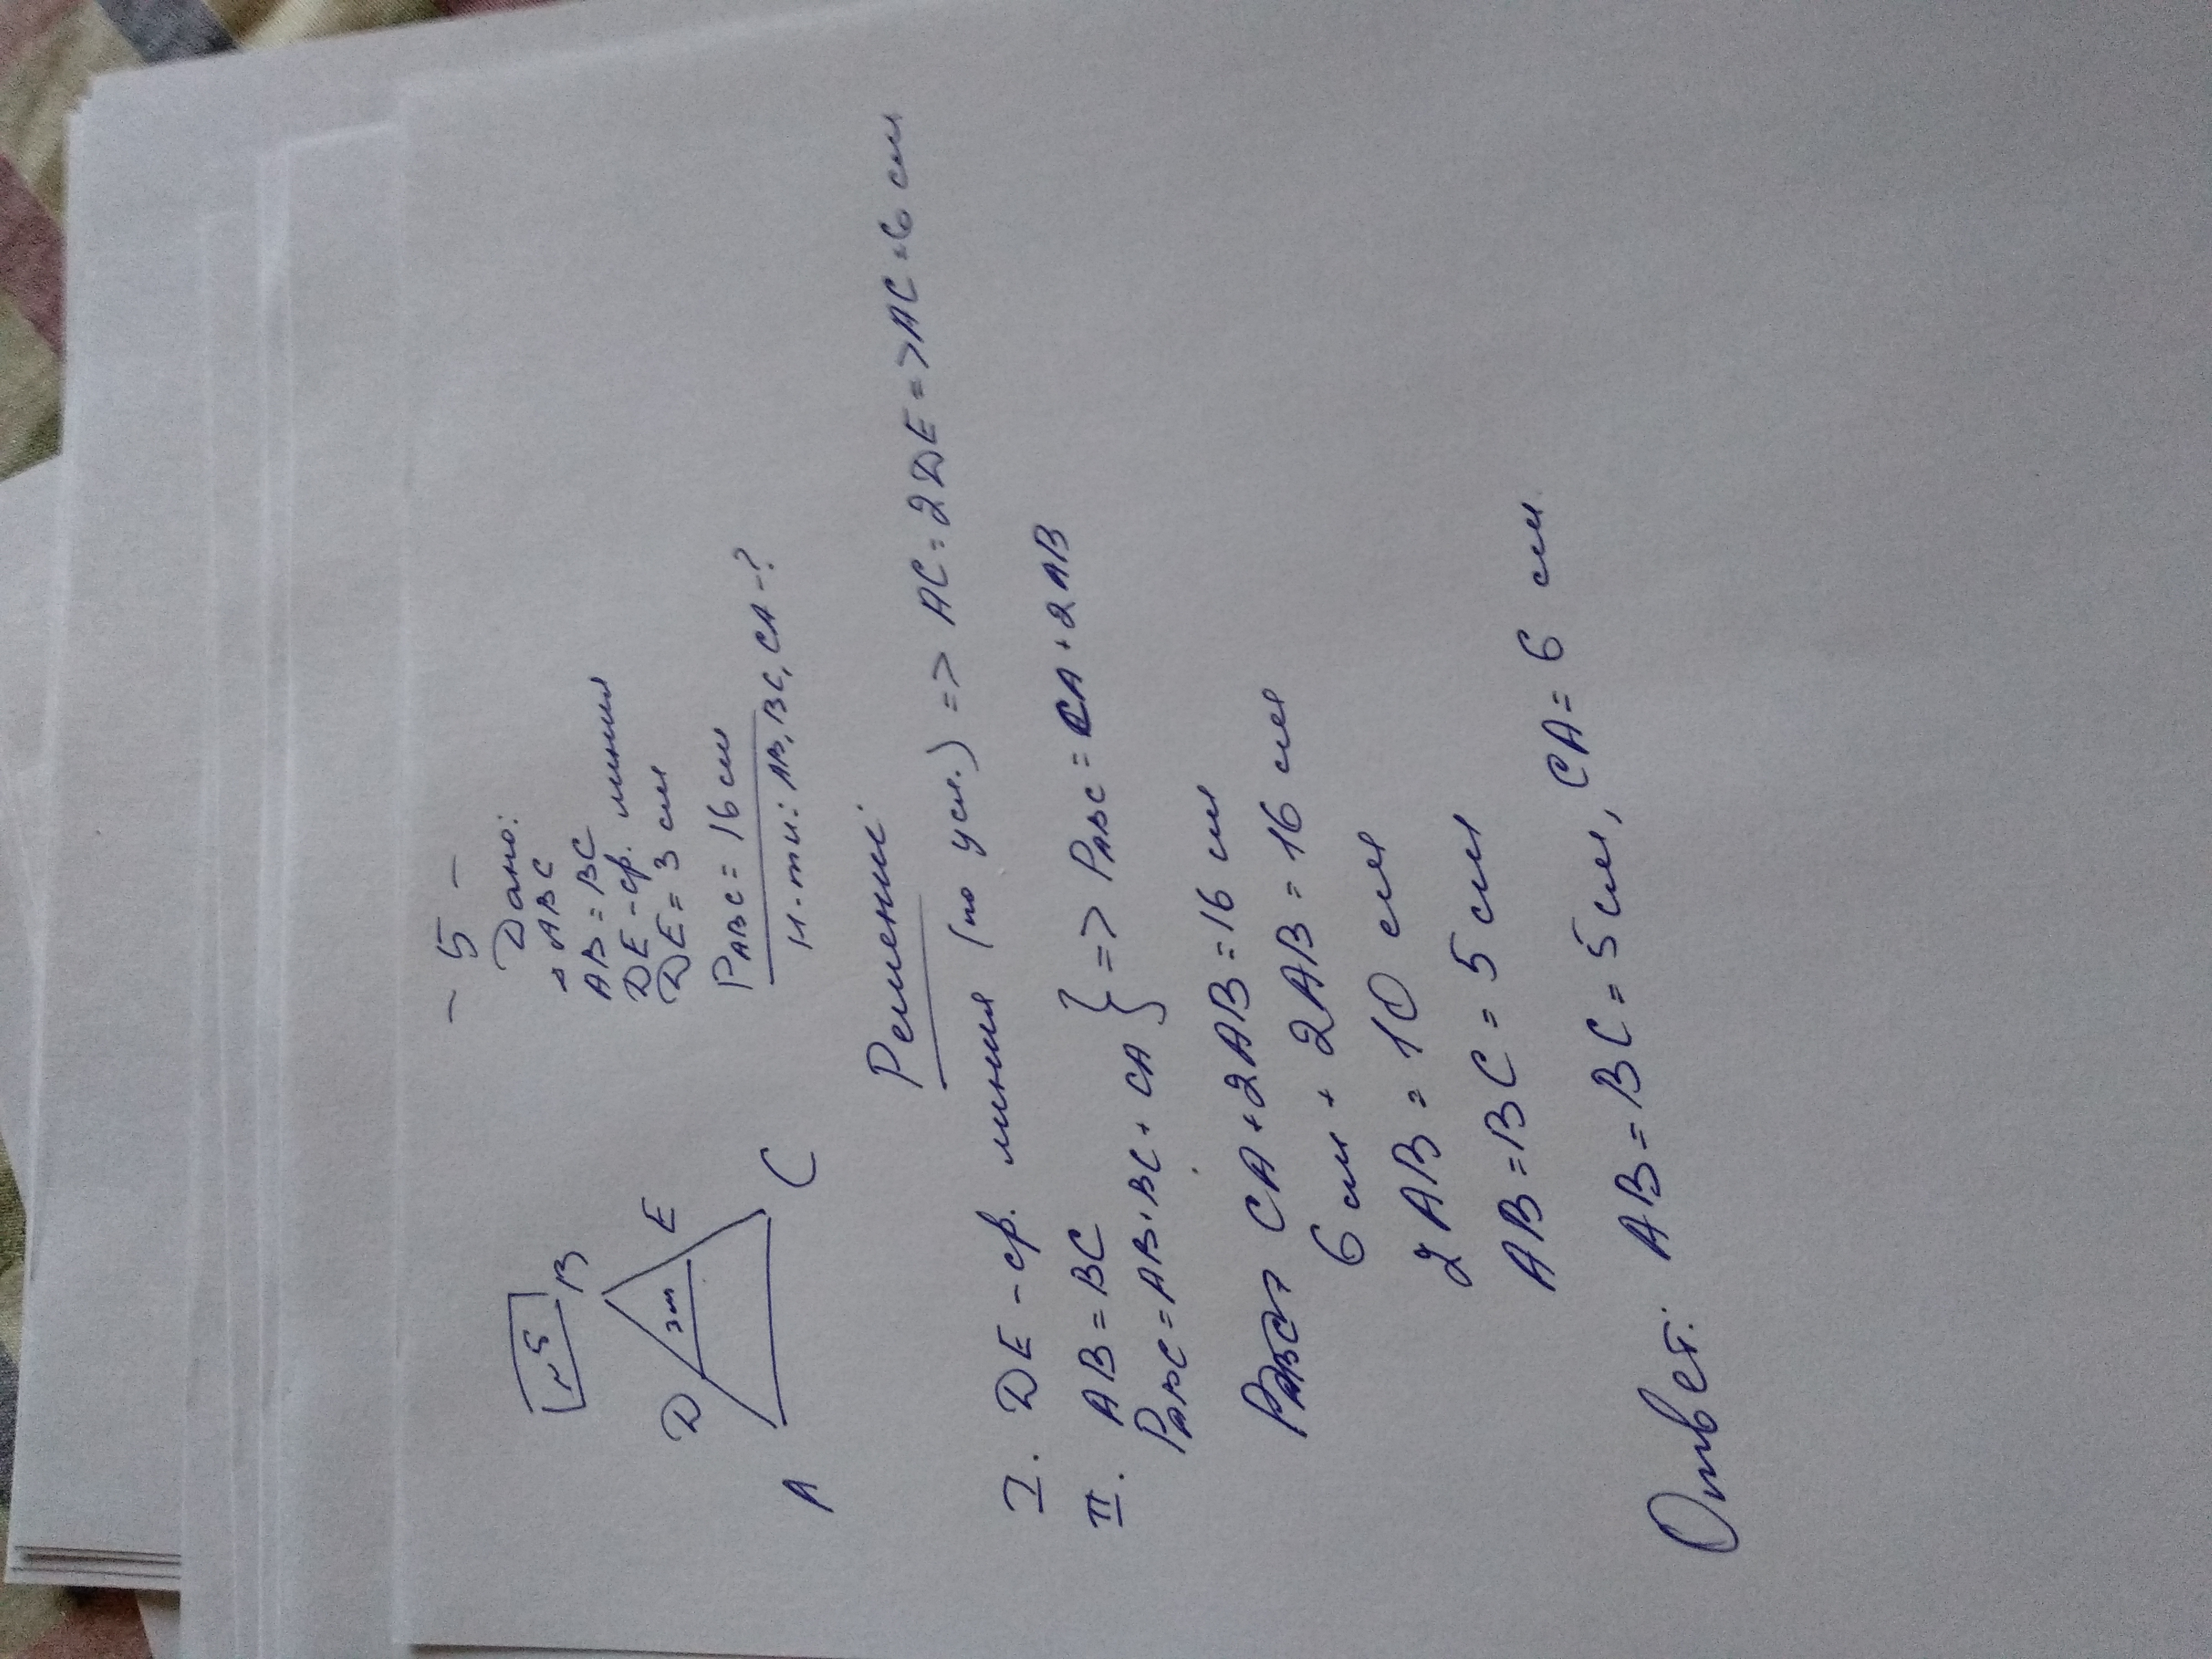 - 5 -
№5
Дано:
△ ABC
AB = BC
DE - ср. линия
DE = 3 см
P ABC = 16 см
Н-ти: AB, BC, CA - ?
B
D
3 см
E
A
C
Решение:
I. DE - ср. линия (по усл.) => AC = 2DE => AC = 6 см
II. AB = BC
P ABC = AB + BC + CA } => P ABC = CA + 2AB
CA + 2AB = 16 см
6 см + 2AB = 16 см
2AB = 10 см
AB = BC = 5 см
Ответ: AB = BC = 5 см, CA = 6 см.